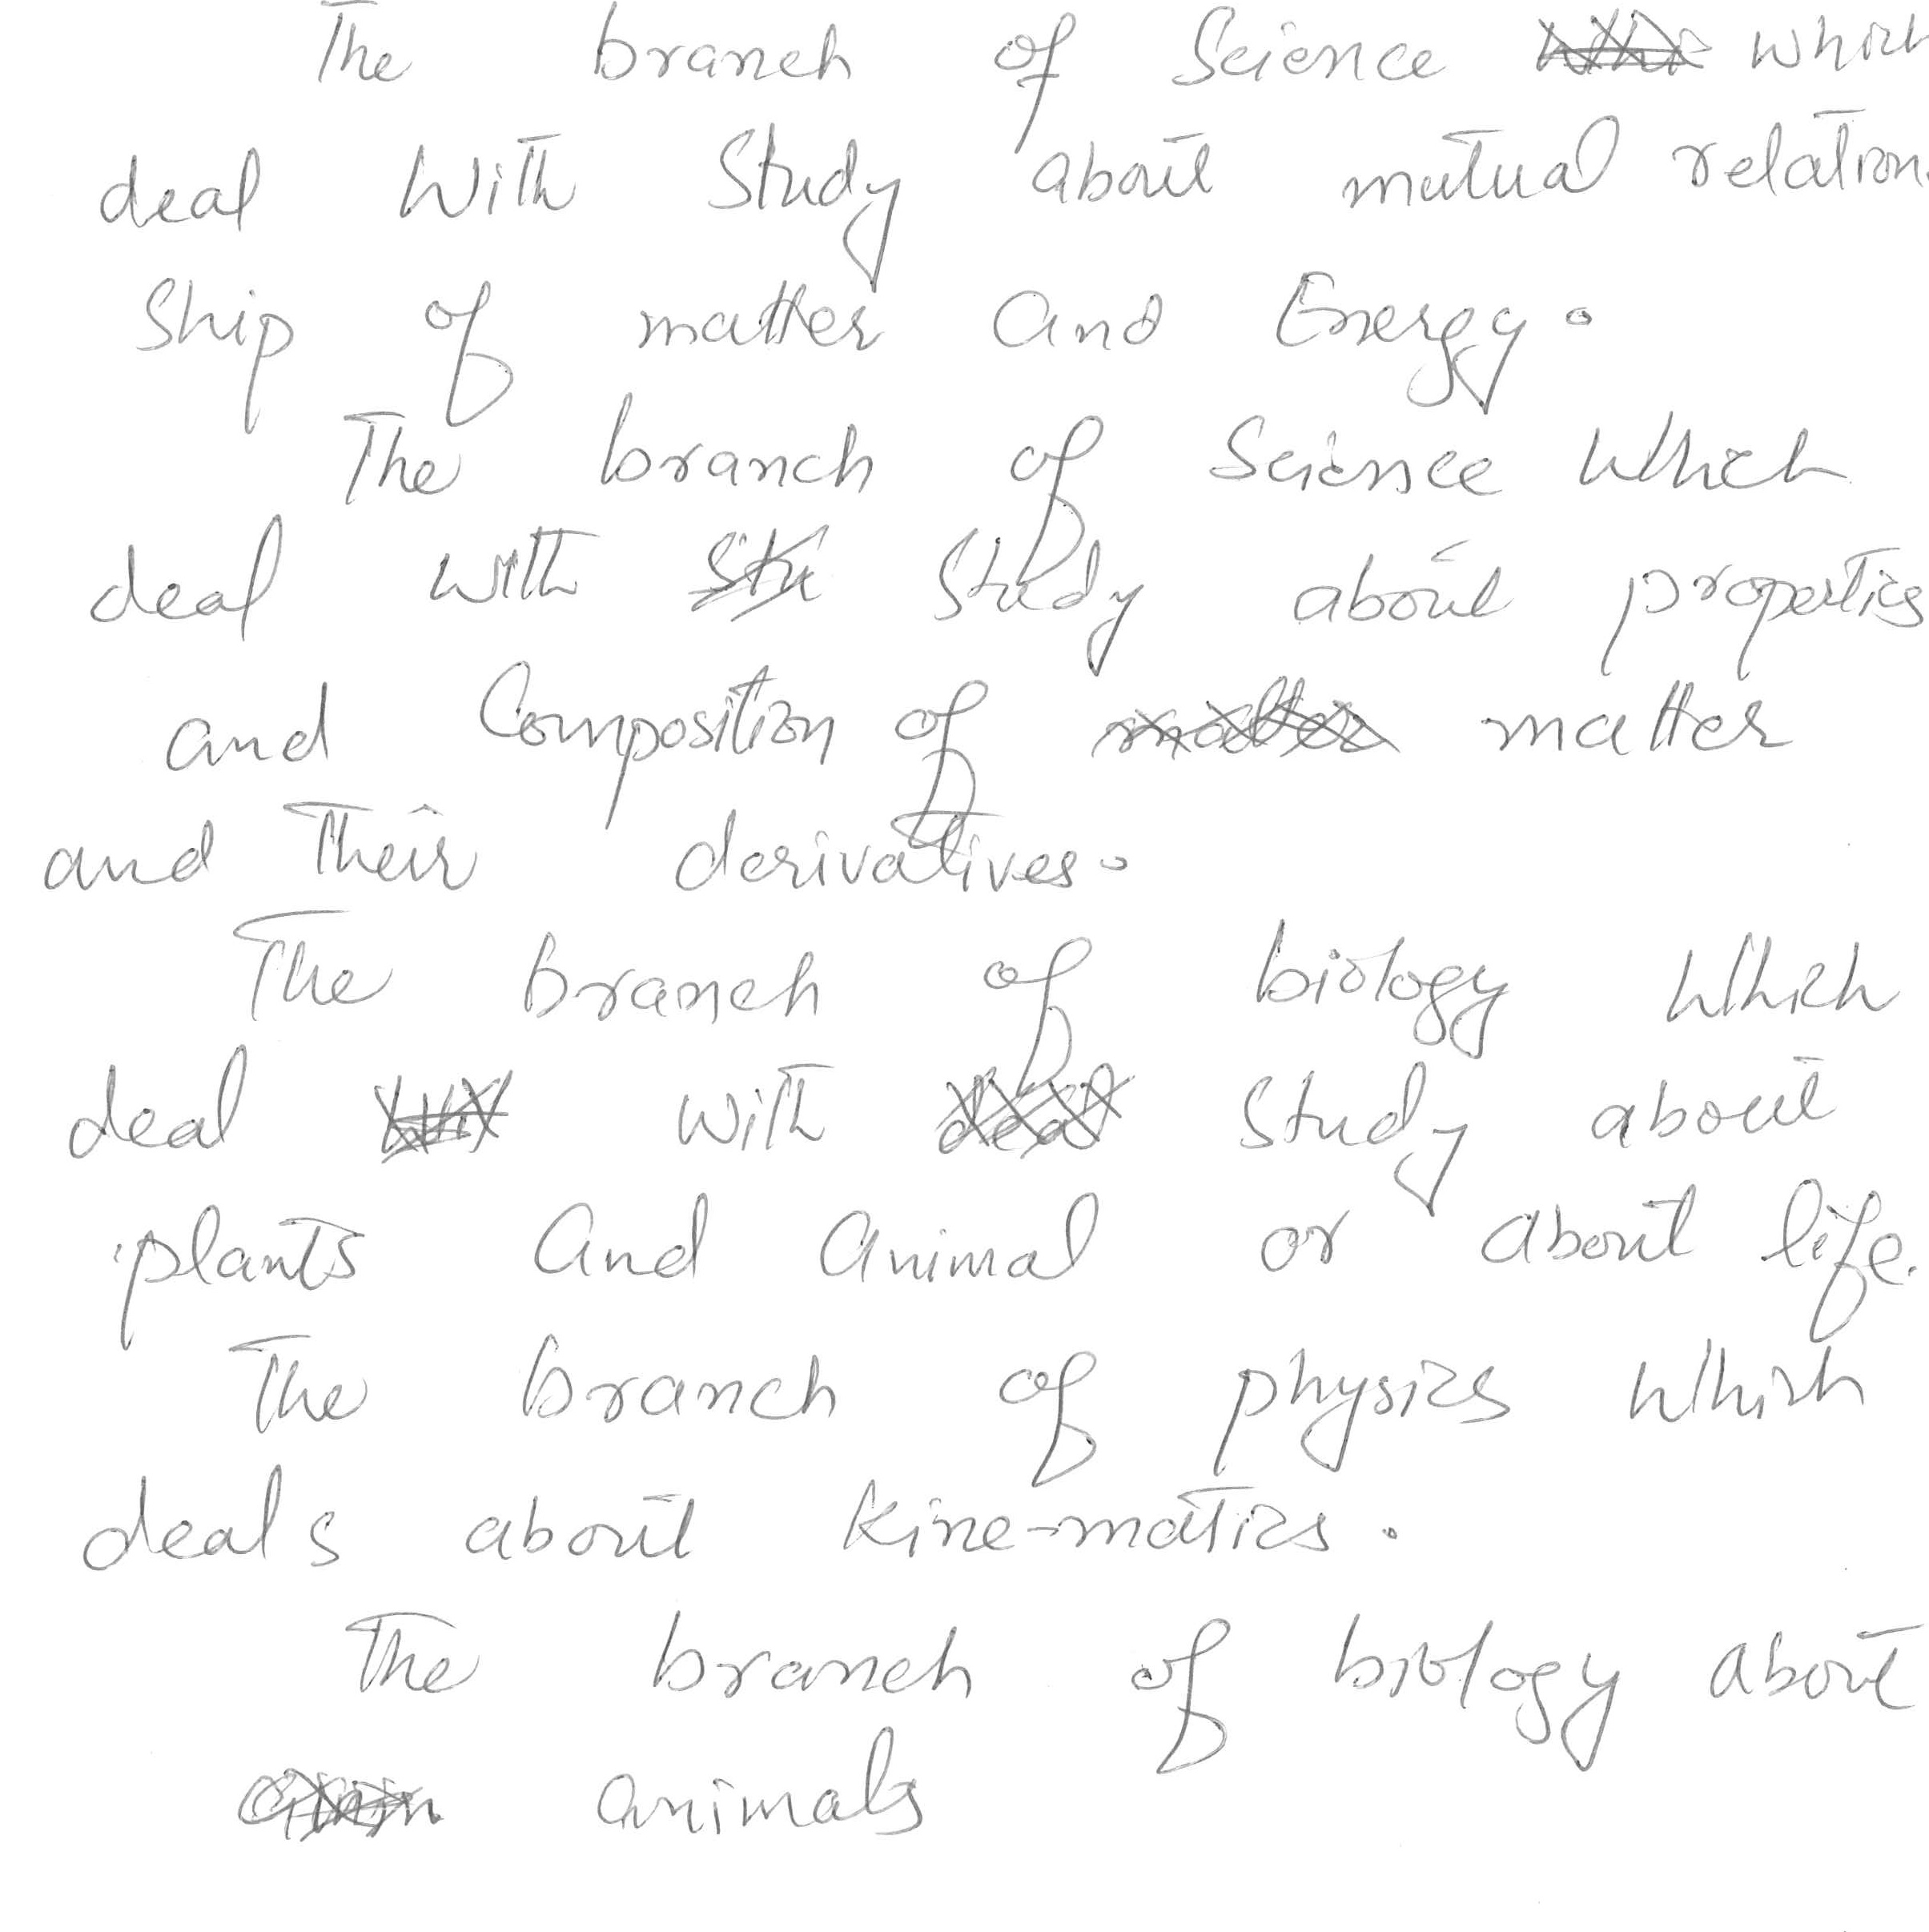 The branch of Science which
deal With Study about mutual relation
Ship of matter and Energy.
The branch of Science Which
deal with Study about properties
and Composition of matter
and Their derivatives.
The branch of biology Which
deal with Study about
plants and animal or about life.
The branch of physics Which
deals about Kine-matics.
The branch of biology about
animals